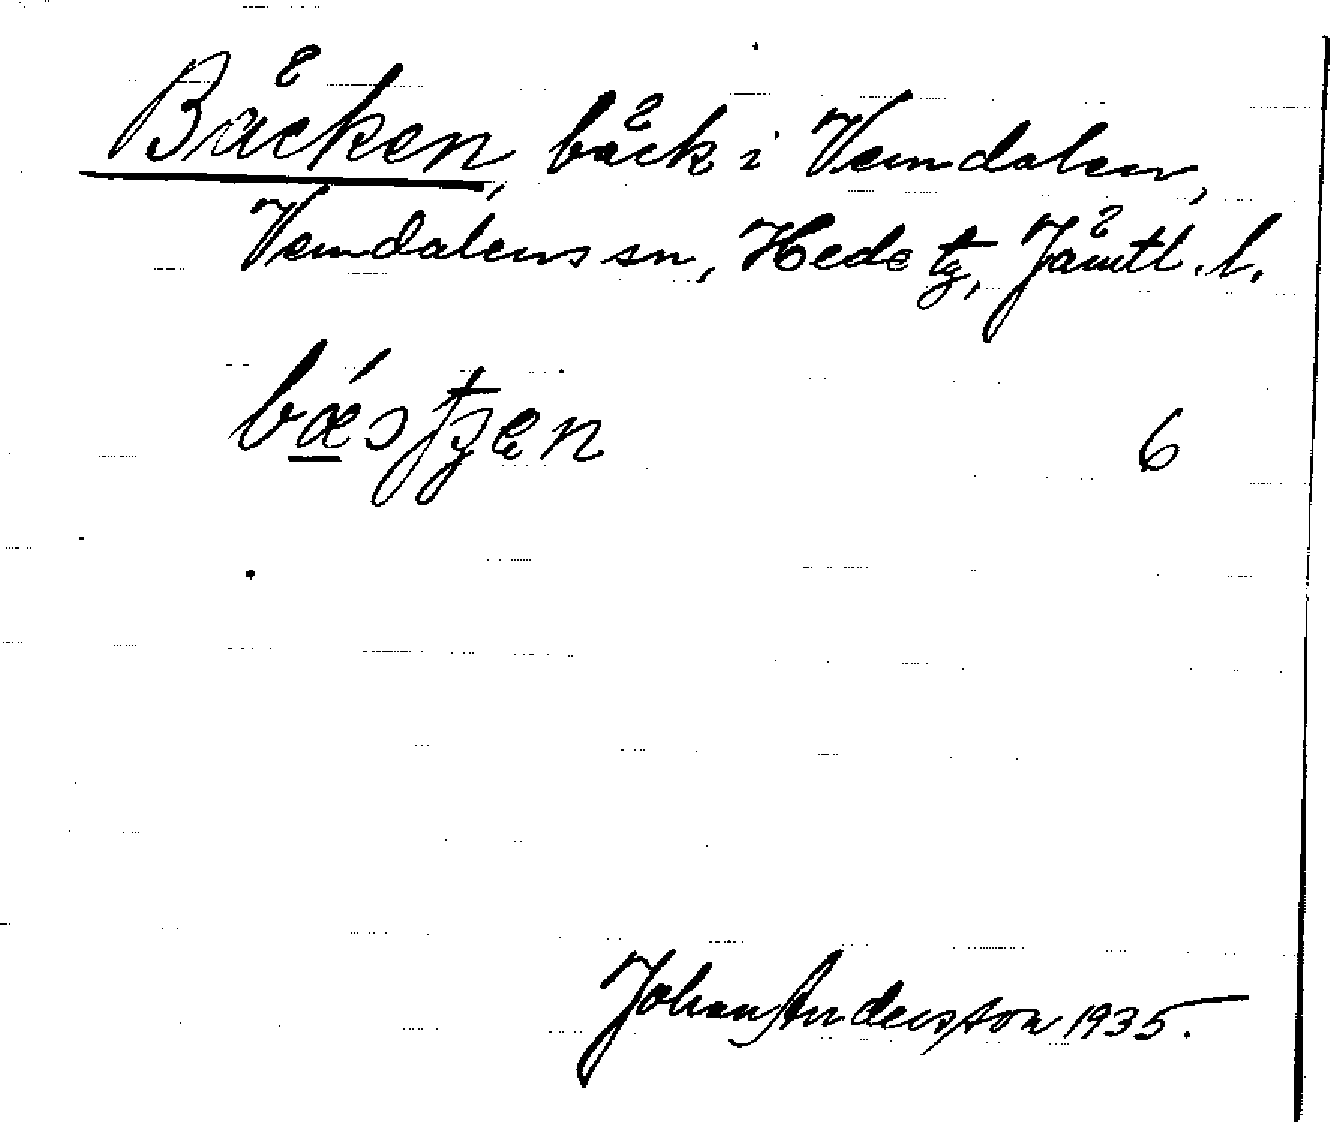 Bäcken, bäck i Vemdalen,
Vemdalens sn, Hede tg, Jämtl. l.
6
Johan Andersson 1935.